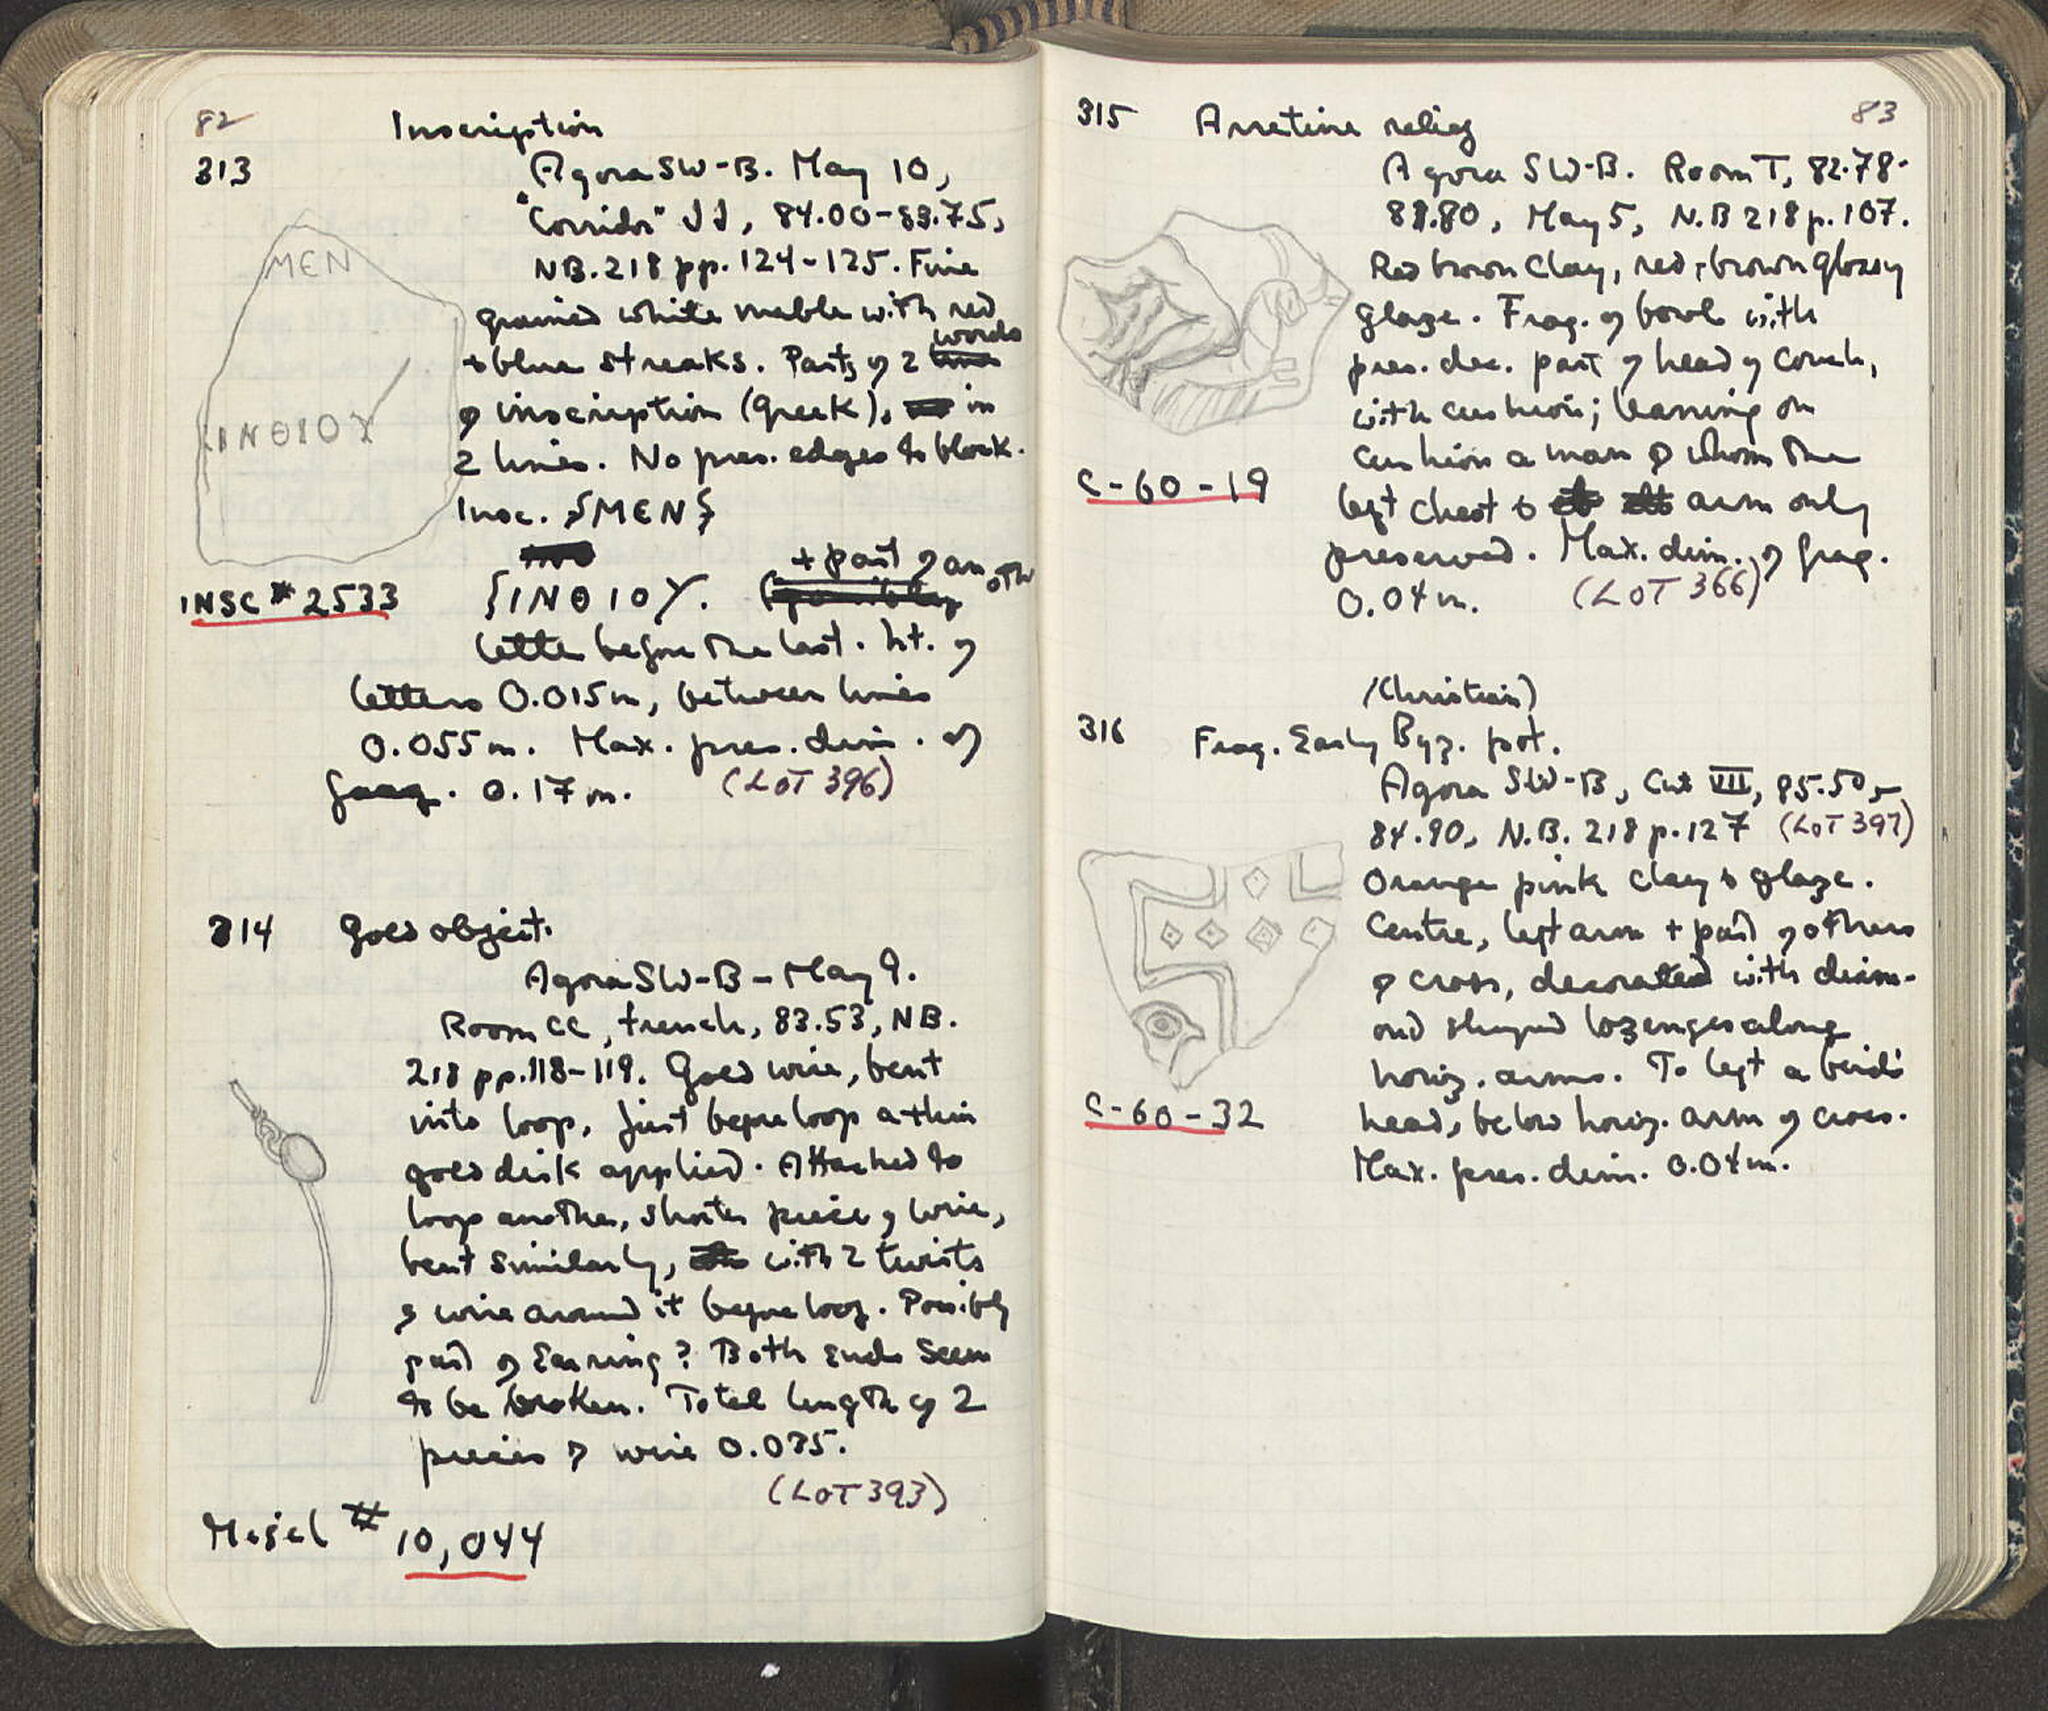 82
Inscription
313
Agora SW-B. May 10,
"Corridor" JJ, 84.00-83.75,
NB. 218 pp. 124-125. Fine
grained white marble with red
+ blue streaks. Parts of 2 words
of inscription (Greek), in
2 lines. No pres. edges to block.
Insc. {MЄN}
{INΘIOY. + part of another
letter before the last. ht. of
letters 0.015m, between lines
0.055m. Max. pres. dim. of
frag. 0.17m. (LOT 396)
MЄN
INΘIOY
INSC # 2533
314 Gold object.
Agora SW-B - May 9.
Room CC, trench, 83.53, NB.
218 pp. 118-119. Gold wire, bent
into loop, just before loop a thin
gold disk applied. Attached to
loop another, shorter piece of wire,
bent similarly, with 2 twists
of wire around it before loop. Possibly
part of Earring? Both ends seem
to be broken. Total length of 2
pieces of wire 0.035.
(LOT 393)
Metal # 10,044
83
315 Arretine relief
Agora SW-B. Room T, 82.78-
, May 5, N.B 218 p. 107.
Red brown clay, red brown glossy
glaze. Frag. of bowl with
pres. dec. part of head of couch,
with cushion; leaning on
cushion a man of whom the
left chest & arm only
preserved. Max. dim. of frag.
0.04m. (LOT 366)
C-60-19
(Christian)
316 Frag. Early Byz. pot.
Agora SW-B, Cut VII, 85.50-
84.90, N.B. 218 p. 127 (LOT 397)
Orange pink clay & glaze.
Centre, left arm + part of others
of cross, decorated with diam-
ond shaped lozenges along
horiz. arms. To left a bird's
head, below horiz. arm of cross.
Max. pres. dim. 0.04m.
C-60-32